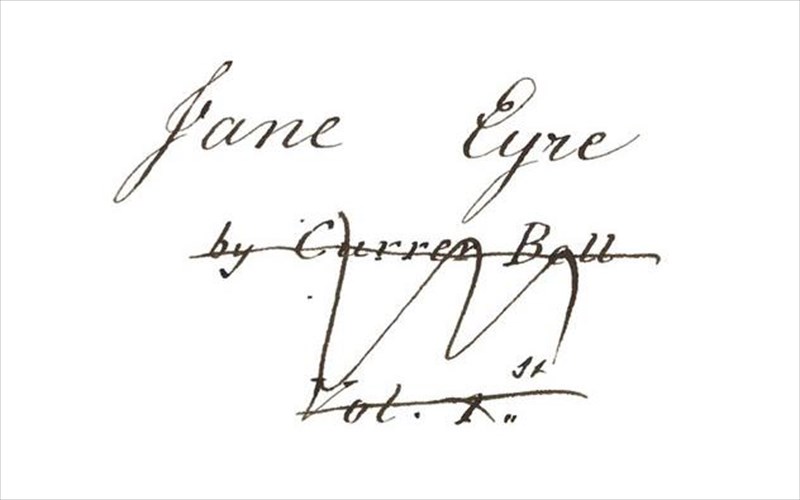 Jane Eyre
by Currer Bell
Vol. 1st